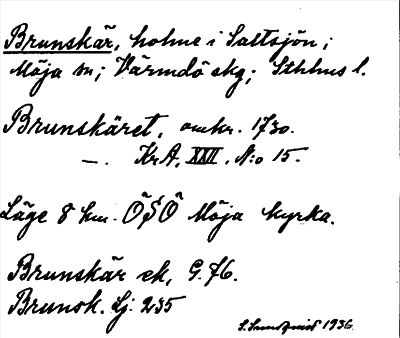 Brunskär, holme i Saltsjön;
Möja sn; Värmdö skg; Sthlms l.
Brunskäret, omkr. 1730.
—. KrA, XXII, N:o 15.
Läge 8 km. ÖSÖ Möja kyrka.
Brunskär ek, G. 76.
Brunsk. Lj: 235
1936